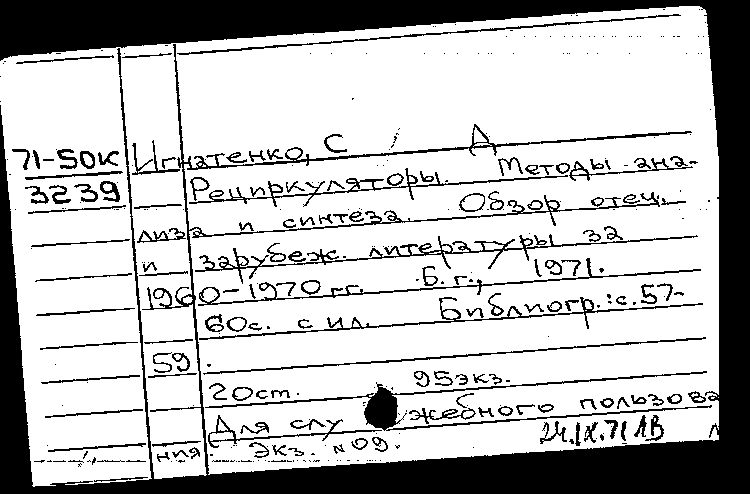 71-50К Игнатенко, С Д
3239 Рециркуляторы. Методы ана-
лиза и синтеза. Обзор отец.
и зарубеж. литературы за
1960-1970 гг. Б.г., 1971.
60с. с ил. Библиогр.: с.57-
59.
20ст. 95экз.
Для служебного пользова
ния. Экз. №09. 24.IX.71